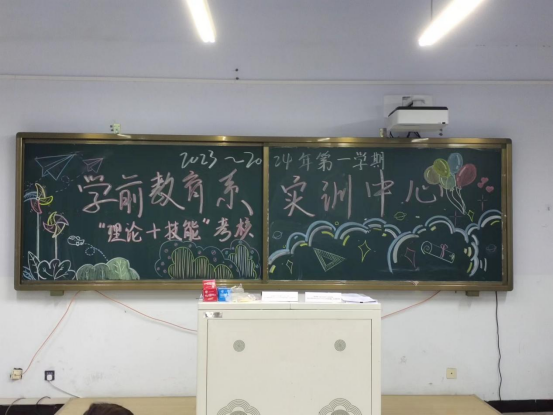 2023~2024年第一学期
学前教育系 实训中心
"理论+技能"考核